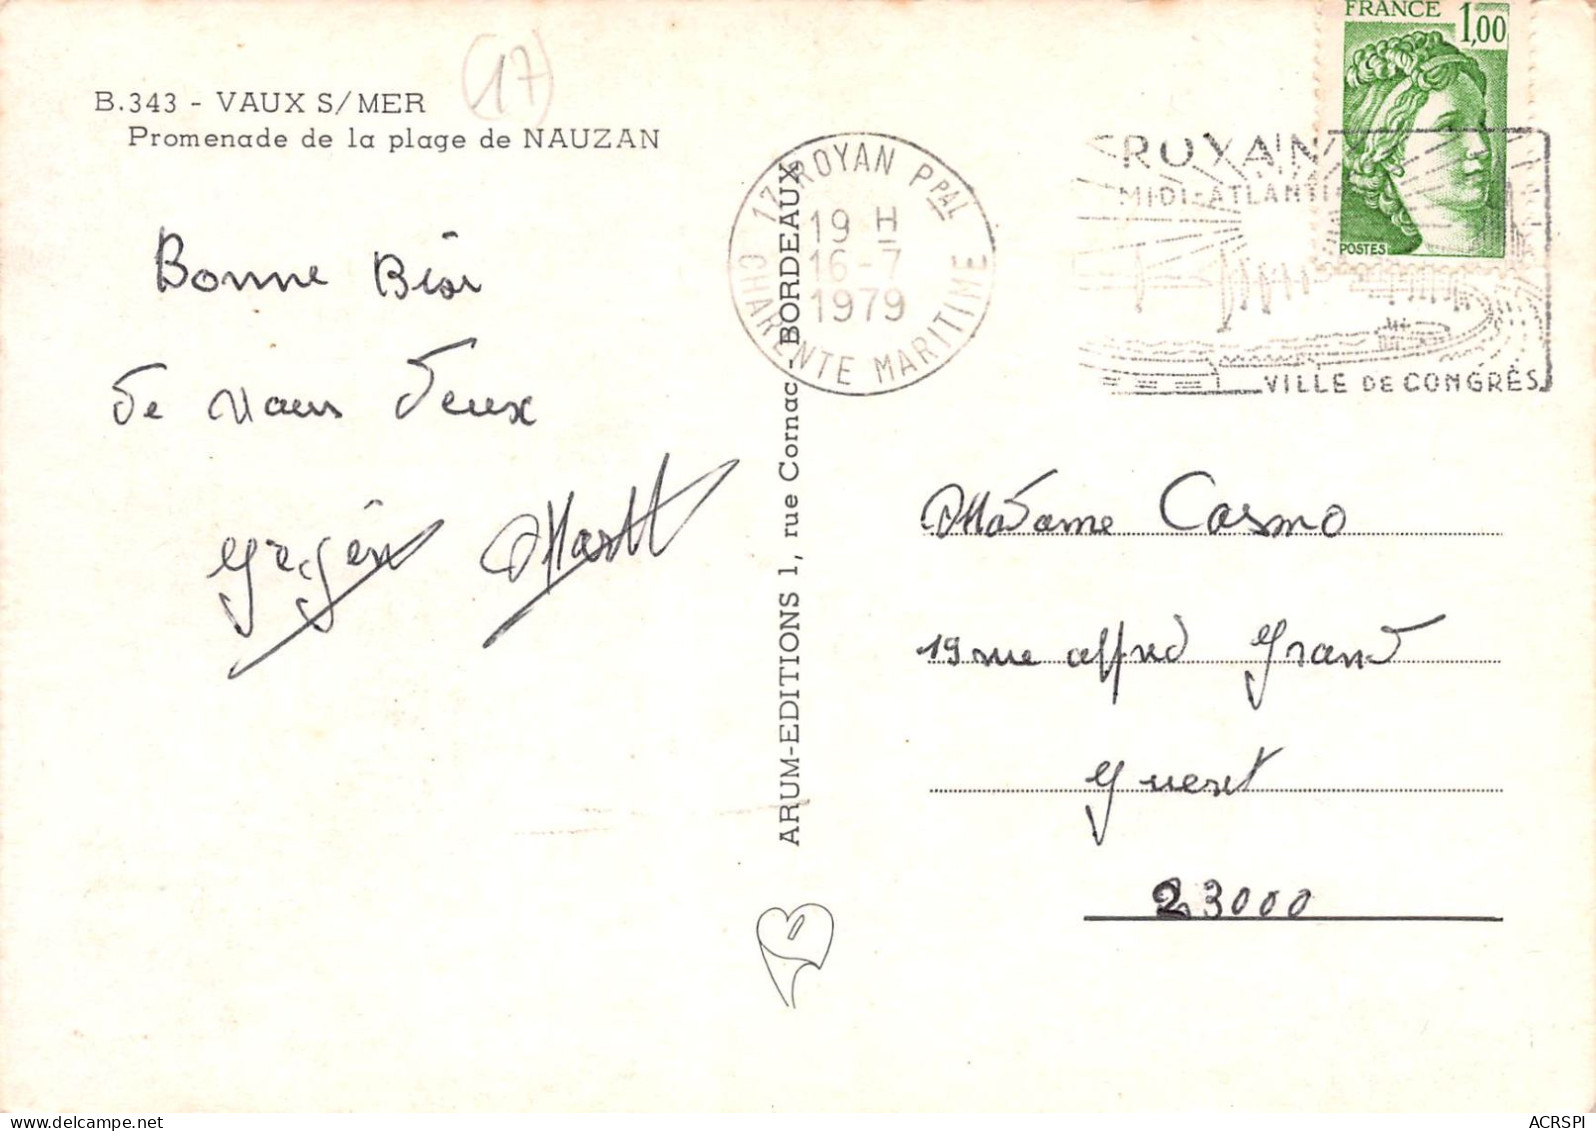 B.343 - VAUX S/MER
(17)
Promenade de la plage de NAUZAN
Bonne Bise
de nous deux
ARUM-EDITIONS 1, rue Cornac - BORDEAUX
17 ROYAN PPAL
19 H
16-7
1979
CHARENTE MARITIME
ROYAN
MIDI-ATLANTI
VILLE DE CONGRÈS
FRANCE 1,00
POSTES
Madame Cosmo
19 rue alfred Grand
Gueret
23000
delcampe.net
ACRSPI